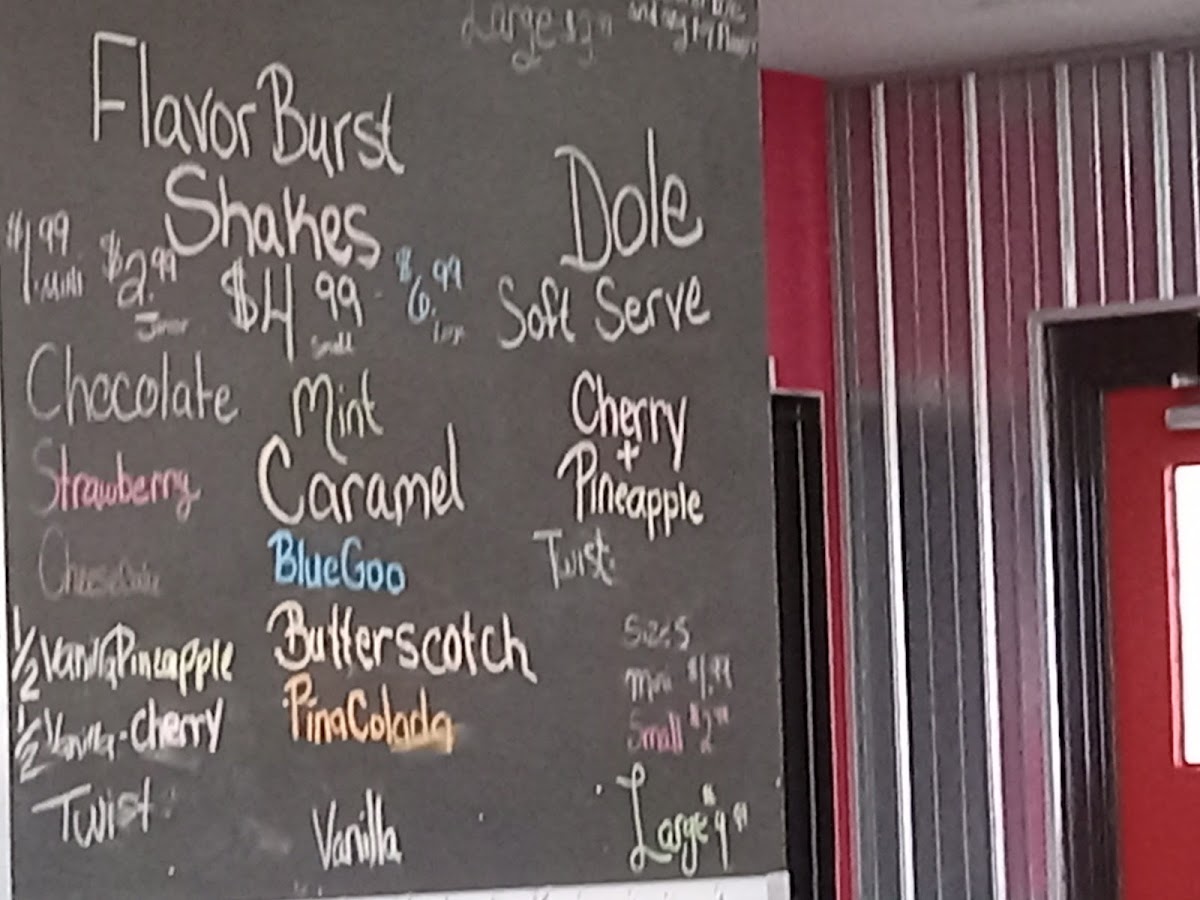 Large $3.99
Flavor Burst
Shakes
$1.99 Mini $2.99 Junior $4.99 Small $6.99 Large
Chocolate
Strawberry
CheeseCake
1/2 Vanilla Pineapple
1/2 Vanilla-Cherry
Twist
Mint
Caramel
BlueGoo
Butterscotch
PinaColada
Vanilla
Dole
Soft Serve
Cherry
+
Pineapple
Twist
Sizes
Mini $1.99
Small $2.99
Large $4.99